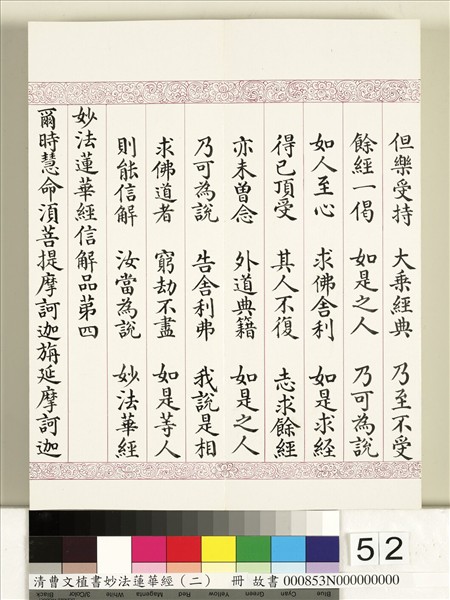 但樂受持 大乘經典 乃至不受
餘經一偈 如是之人 乃可為說
如人至心 求佛舍利 如是求經
得已頂受 其人不復 志求餘經
亦未曾念 外道典籍 如是之人
乃可為說 告舍利弗 我說是相
求佛道者 窮劫不盡 如是等人
則能信解 汝當為說 妙法華經
妙法蓮華經信解品第四
爾時慧命須菩提摩訶迦旃延摩訶迦
52
清曹文植書妙法蓮華經（二） 冊 故書 000853N000000000
Blue Cyan Green Yellow Red Magenta White 3/Color Black